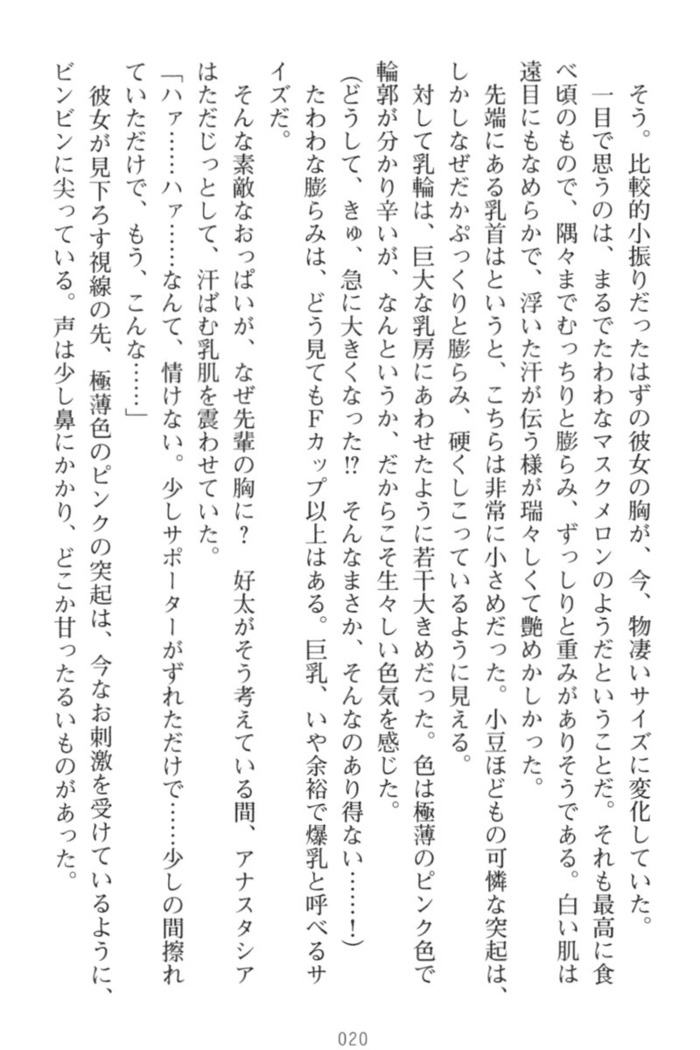 そう。比較的小振りだったはずの彼女の胸が、今、物凄いサイズに変化していた。
一目で思うのは、まるでたわわなマスクメロンのようだということだ。それも最高に食
べ頃のもので、隅々までむっちりと膨らみ、ずっしりと重みがありそうである。白い肌は
遠目にもなめらかで、浮いた汗が伝う様が瑞々しくて艶めかしかった。
先端にある乳首はというと、こちらは非常に小さめだった。小豆ほどもの可憐な突起は、
しかしなぜだかぷっくりと膨らみ、硬くしこっているように見える。
対して乳輪は、巨大な乳房にあわせたように若干大きめだった。色は極薄のピンク色で
輪郭が分かり辛いが、なんというか、だからこそ生々しい色気を感じた。
(どうして、きゅ、急に大きくなった!? そんなまさか、そんなのあり得ない……!)
たわわな膨らみは、どう見てもFカップ以上はある。巨乳、いや余裕で爆乳と呼べるサ
イズだ。
そんな素敵なおっぱいが、なぜ先輩の胸に? 好太がそう考えている間、アナスタシア
はただじっとして、汗ばむ乳肌を震わせていた。
「ハァ……ハァ……なんて、情けない。少しサポーターがずれただけで……少しの間擦れ
ていただけで、もう、こんな……」
彼女が見下ろす視線の先、極薄色のピンクの突起は、今なお刺激を受けているように、
ビンビンに尖っている。声は少し鼻にかかり、どこか甘ったるいものがあった。
020